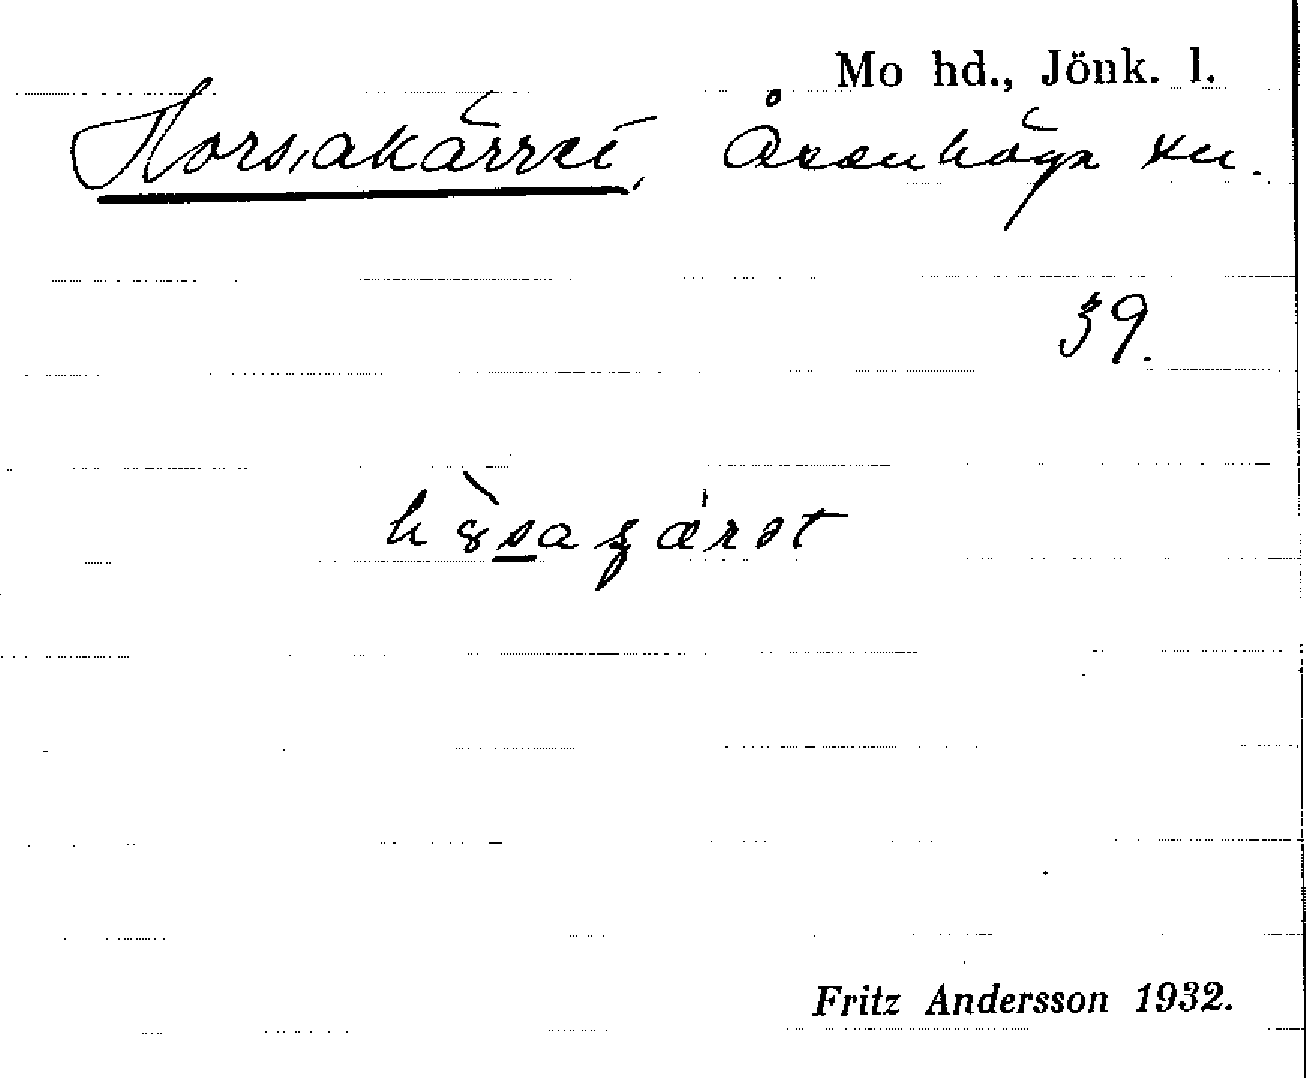 Mo hd., Jönk. l.
Horsakärret, Åsenhöga sn.
39.
Fritz Andersson 1932.